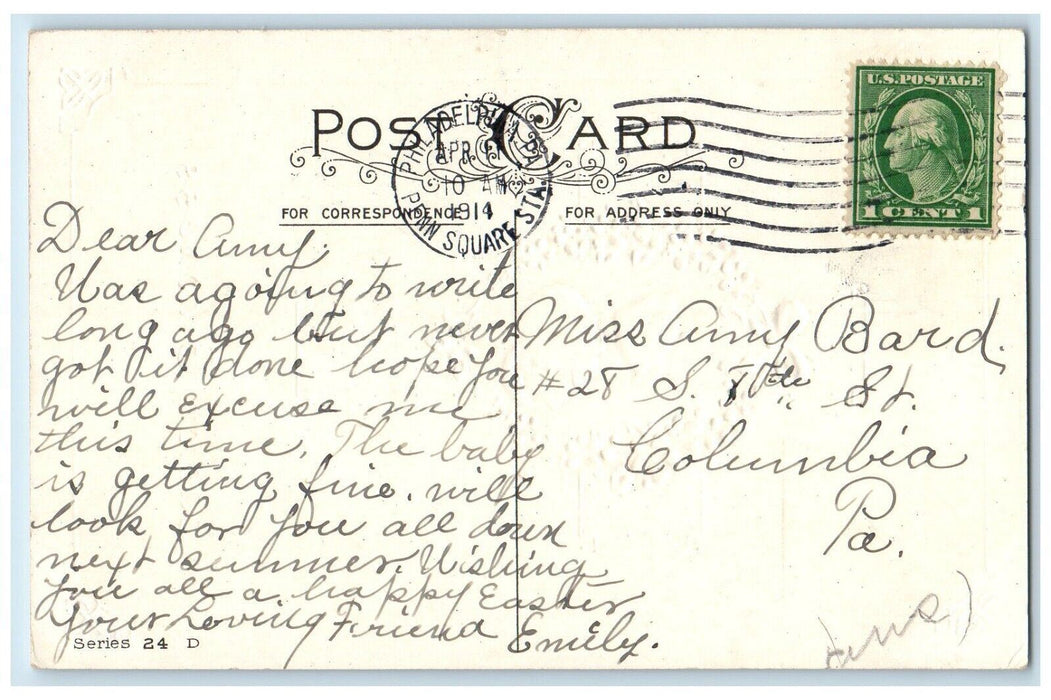 POST CARD
FOR CORRESPONDENCE
FOR ADDRESS ONLY
PHILADELPHIA, PA.
APR
10 AM
1914
PENN SQUARE STA.
U.S. POSTAGE
1 CENT 1
Dear Amy.
Was agoing to write
long ago but never
got it done hope you
will excuse me
this time. The baby
is getting fine. will
look for you all down
next summer. Wishing
you all a happy Easter
Your Loving Friend Emily.
Miss Amy Bard.
#28 S. St.
Columbia
Pa.
Series 24 D